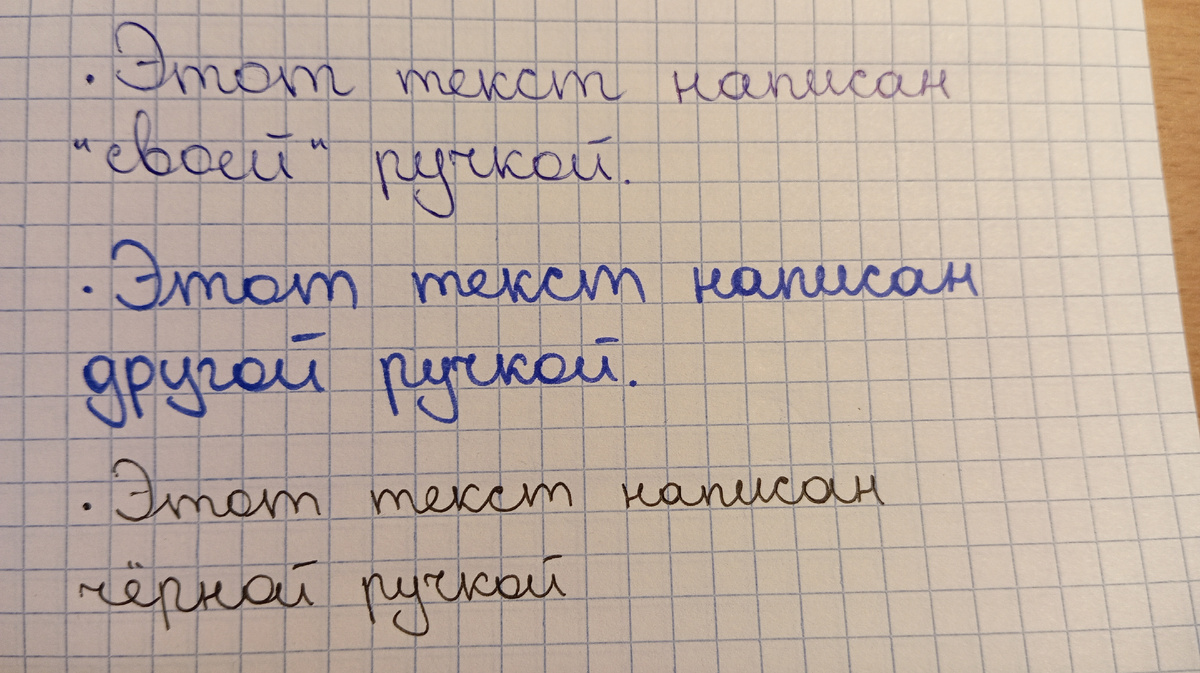 · Этот текст написан
"своей" ручкой.
· Этот текст написан
другой ручкой.
· Этот текст написан
чёрной ручкой